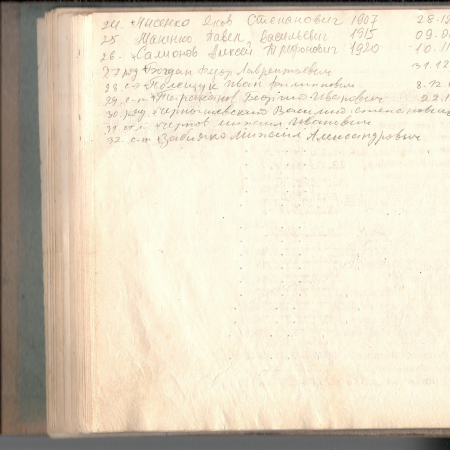 24. Лисенко Яков Степанович 1907 28.12
25. Маненко Павел Васильевич 1915 09.0
26. Салионов Алексей Трифонович 1920 10.11
27 ряд. Богдан Федор Лаврентьевич 31.12
28. Полещук Иван Филиппович 8.12
29. Георгий Иванович 22.1
30. ряд. Чернышевский Василий Степанович
31. Чернов Михаил Иванович
32. с-т Забияка Михаил Александрович